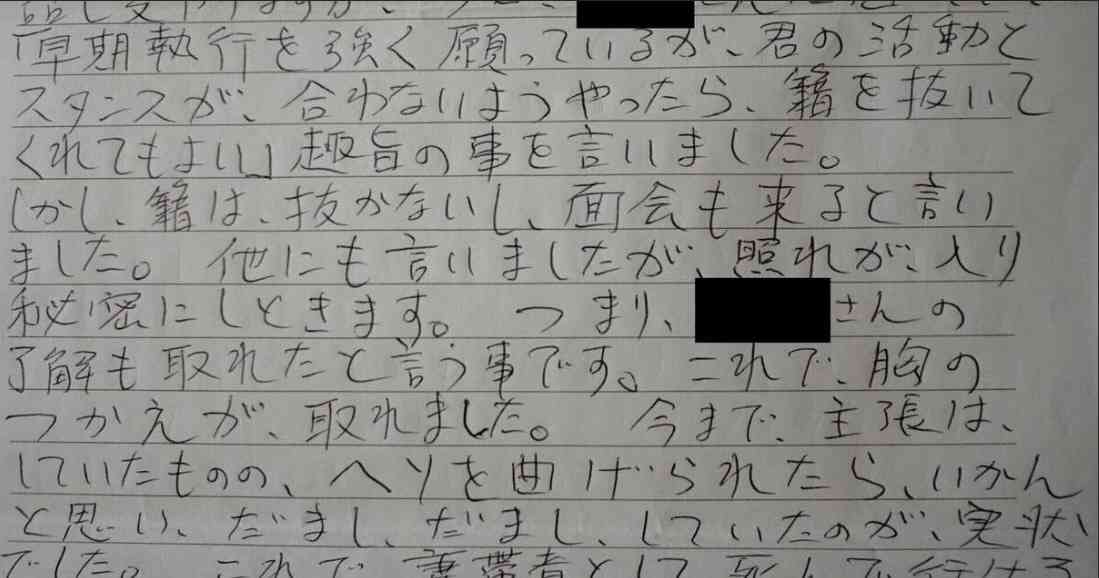 「早期執行を強く願っているが、君の活動と
スタンスが、合わないようやったら、籍を抜いて
くれてもよい」趣旨の事を言いました。
しかし、籍は、抜かないし、面会も来ると言い
ました。 他にも言いましたが、照れが、入り
秘密にしときます。 つまり、 さんの
了解も取れたと言う事です。 これで、胸の
つかえが、取れました。 今まで、主張は、
していたものの、ヘソを曲げられたら、いかん
と思い、だまし、だまし、していたのが、実状
でした。 これで、妻帯者として死んで行ける